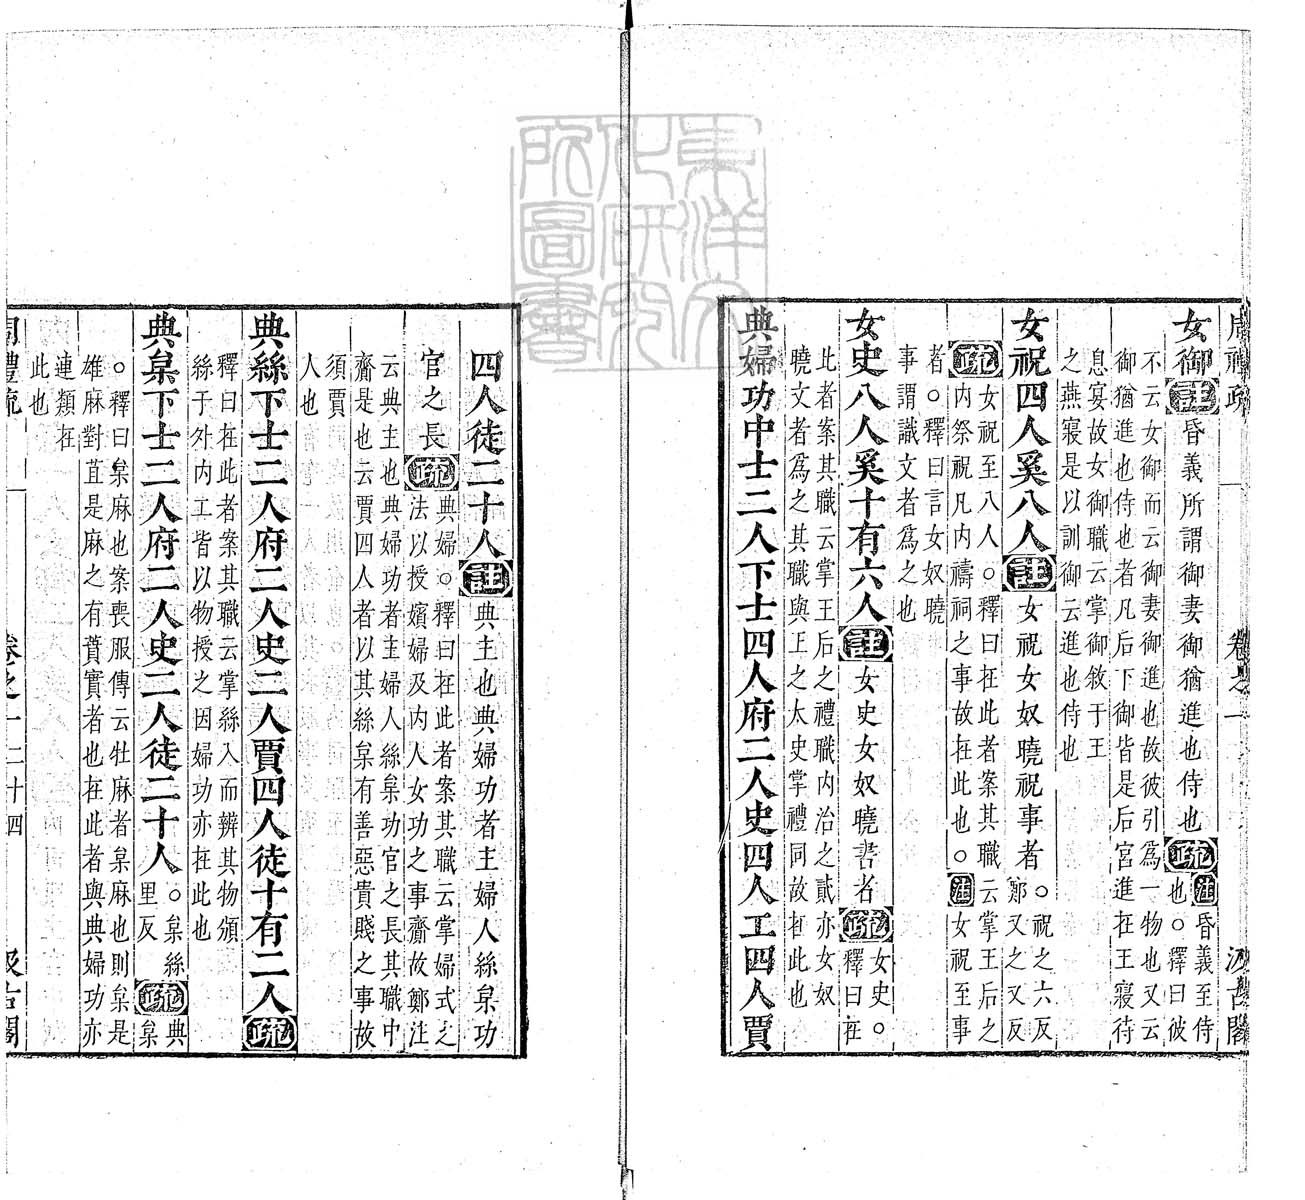 周禮疏 卷之一 汲古閣
女御註昏義所謂御妻御猶進也侍也疏注昏義至侍也○釋曰彼
不云女御而云御妻御進也故彼引爲一物也又云
御猶進也侍也者凡后下御皆是后宮進在王寢待
息宴故女御職云掌御敘于王
之燕寢是以訓御云進也侍也
女祝四人奚八人註女祝女奴曉祝事者○祝之六反鄭又之又反
疏女祝至八人○釋曰在此者案其職云掌王后之
内祭祝凡内禱祠之事故在此也○注女祝至事
者○釋曰言女奴曉
事謂識文者爲之也
女史八人奚十有六人註女史女奴曉書者疏女史○釋曰在
此者案其職云掌王后之禮職内治之貳亦女奴
曉文者爲之其職與王之太史掌禮同故在此也
典婦功中士二人下士四人府二人史四人工四人賈
四人徒二十人註典主也典婦功者主婦人絲枲功
官之長疏典婦○釋曰在此者案其職云掌婦式之
法以授嬪婦及内人女功之事齎故鄭注
云典主也典婦功者主婦人絲枲功官之長其職中
齎是也云賈四人者以其絲枲有善惡貴賤之事故
須賈
人也
典絲下士二人府二人史二人賈四人徒十有二人疏
釋曰在此者案其職云掌絲入而辨其物頒
絲于外内工皆以物授之因婦功亦在此也
典枲下士二人府二人史二人徒二十人○枲絲里反疏典枲
○釋曰枲麻也案喪服傳云牡麻者枲麻也則枲是
雄麻對苴是麻之有蕡實者也在此者與典婦功亦
連類在
此也
周禮疏 卷之一 二十四 汲古閣
東洋文化研究所圖書